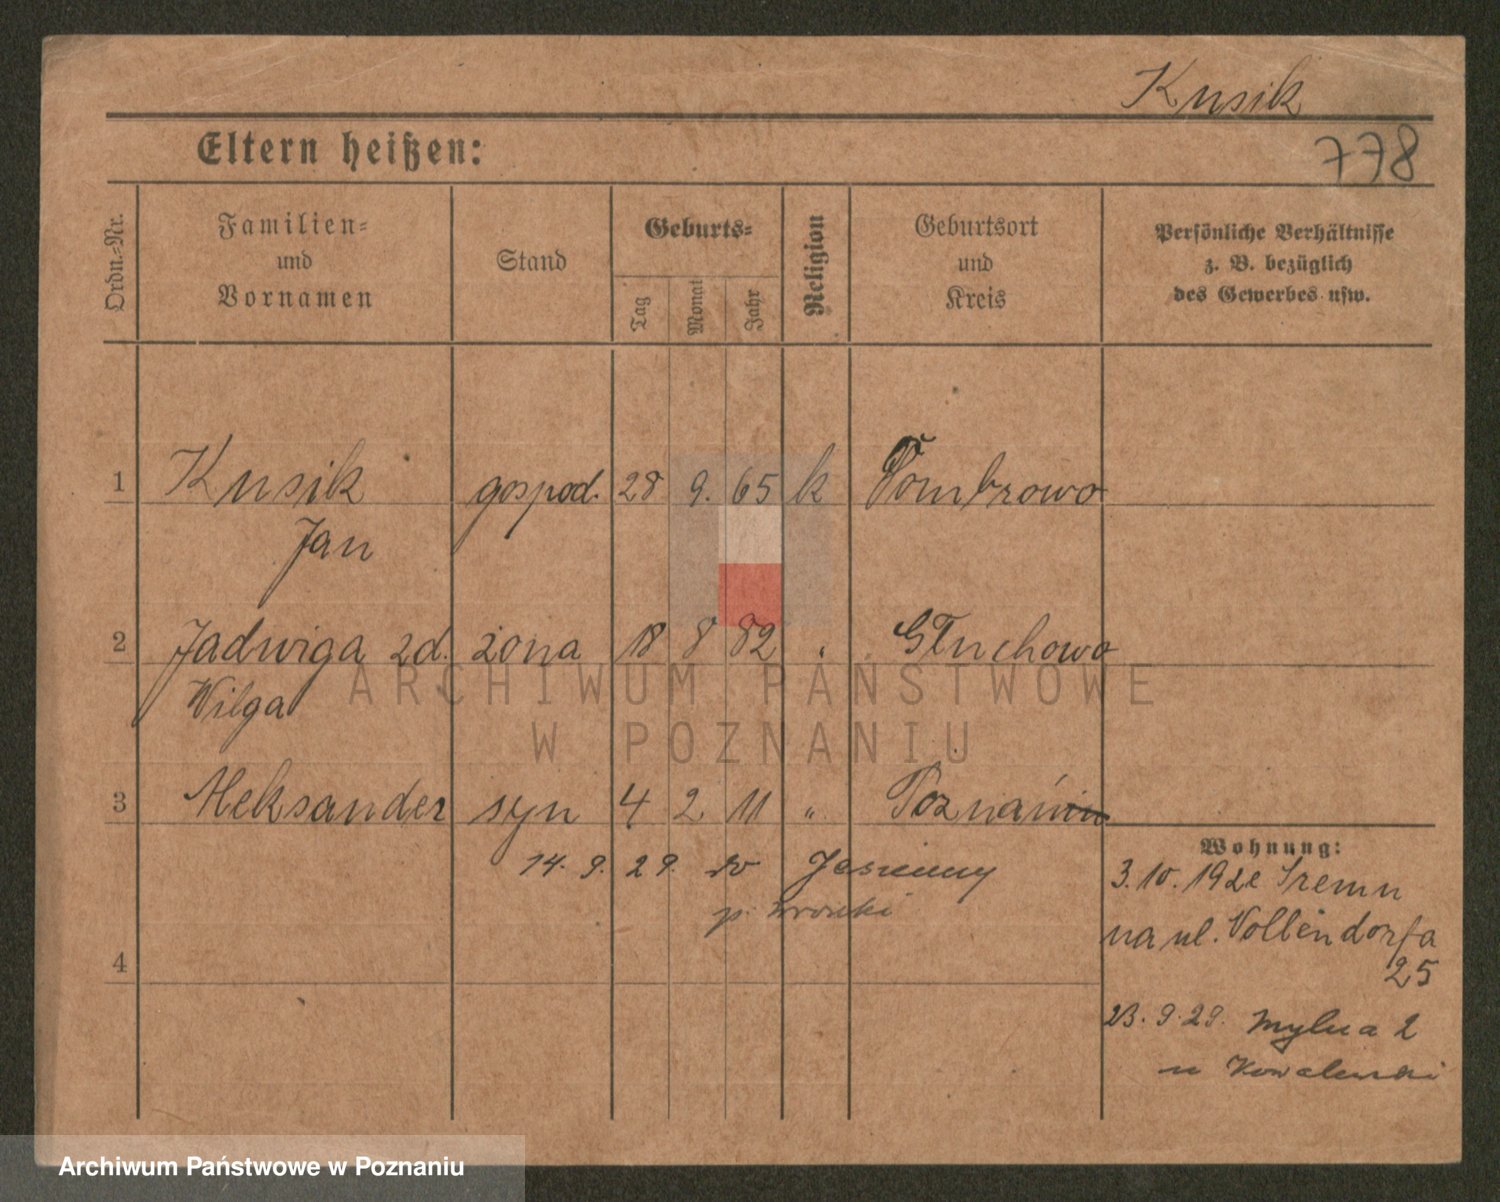 Kusik
778
Eltern heißen:
Ordn.-Nr.
Familien-
und
Vornamen
Stand
Geburts-
Tag
Monat
Jahr
Religion
Geburtsort
und
Kreis
Persönliche Verhältnisse
z. B. bezüglich
des Gewerbes usw.
1 Kusik gospod. 28 9. 65 k Dombrowo
Jan
2 Jadwiga zd. żona 18 8 82 " Głuchowo
Wilga
3 Aleksander syn 4 2 11 " Poznań
14. 9. 29. do
p.
4
Wohnung:
3.10.192 Śremu
na ul. Vollendorfa
25
23.9.29. Mylna 2
u Kowalewski
ARCHIWUM PAŃSTWOWE
W POZNANIU
Archiwum Państwowe w Poznaniu